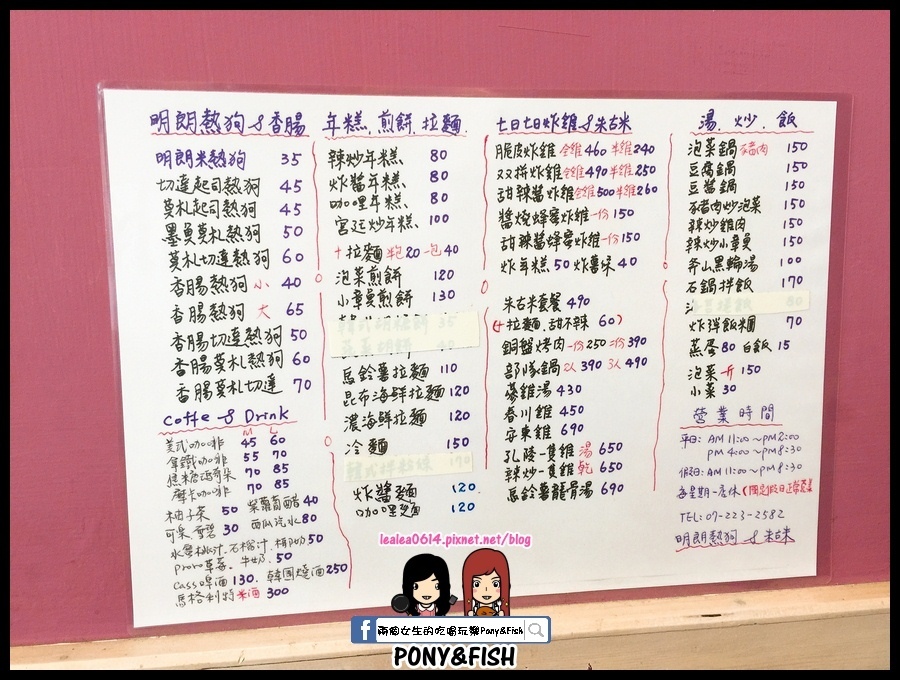 明朗熱狗 & 香腸
明朗米熱狗 35
切達起司熱狗 45
莫札起司熱狗 45
墨魚莫札熱狗 50
莫札切達熱狗 60
香腸熱狗 小 40
香腸熱狗 大 65
香腸切達熱狗 50
香腸莫札熱狗 60
香腸莫札切達 70
Coffe & Drink
M L
美式咖啡 45 60
拿鐵咖啡 55 70
焦糖瑪奇朵 70 85
摩卡咖啡 70 85
柚子茶 50 紫蘿蔔醋 40
可樂.雪碧 30 西瓜汽水 80
50
牛奶.50
Casso啤酒 130. 韓国燒酒 250
馬格利特米酒 300
年糕.煎餅.拉麵
辣炒年糕 80
炸醬年糕 80
咖哩年糕 80
宮廷炒年糕 100
+拉麵 半包 20 一包 40
泡菜煎餅 120
小章魚煎餅 130
馬鈴薯拉麵 110
昆布海鮮拉麵 120
濃海鮮拉麵 120
冷麵 150
炸醬麵 120
咖哩麵 120
七日七日炸雞 & 朱古米
脆皮炸雞 全雞460 半雞240
双拼炸雞 全雞490 半雞250
甜辣醬炸雞 全雞500 半雞260
醬燒蜂蜜炸雞 一份 150
甜辣醬蜂蜜炸雞 一份 150
炸年糕 50 炸薯條 40
朱古米套餐 490
(+拉麵.甜不辣 60)
銅盤烤肉 一份 250 二份 390
部隊鍋 2人 390 3人 490
蔘雞湯 430
春川雞 450
安東雞 690
孔隆一隻雞 湯 650
辣炒一隻雞 乾 650
馬鈴薯龍骨湯 690
湯.炒.飯
泡菜鍋 豬肉 150
豆腐鍋 150
豆醬鍋 150
豬肉炒泡菜 150
辣炒雞肉 150
辣炒小章魚 150
釜山黑輪湯 100
石鍋拌飯 170
炸彈飯糰 70
蒸蛋 80 白飯 15
泡菜一斤 150
小菜 30
營業時間
平日: AM 11:00 ~ PM 2:00
PM 4:00 ~ PM 8:30
假日: AM 11:00 ~ PM 8:30
每星期一店休
TEL: 07-223-2582
明朗熱狗 & 朱古米
lealea0614.pixnet.net/blog
兩個女生的吃喝玩樂Pony&Fish
PONY&FISH